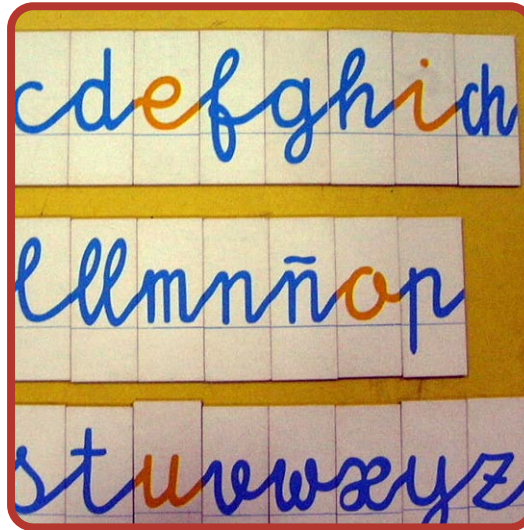 c d e f g h i ch
l ll m n ñ o p
s t u v w x y z